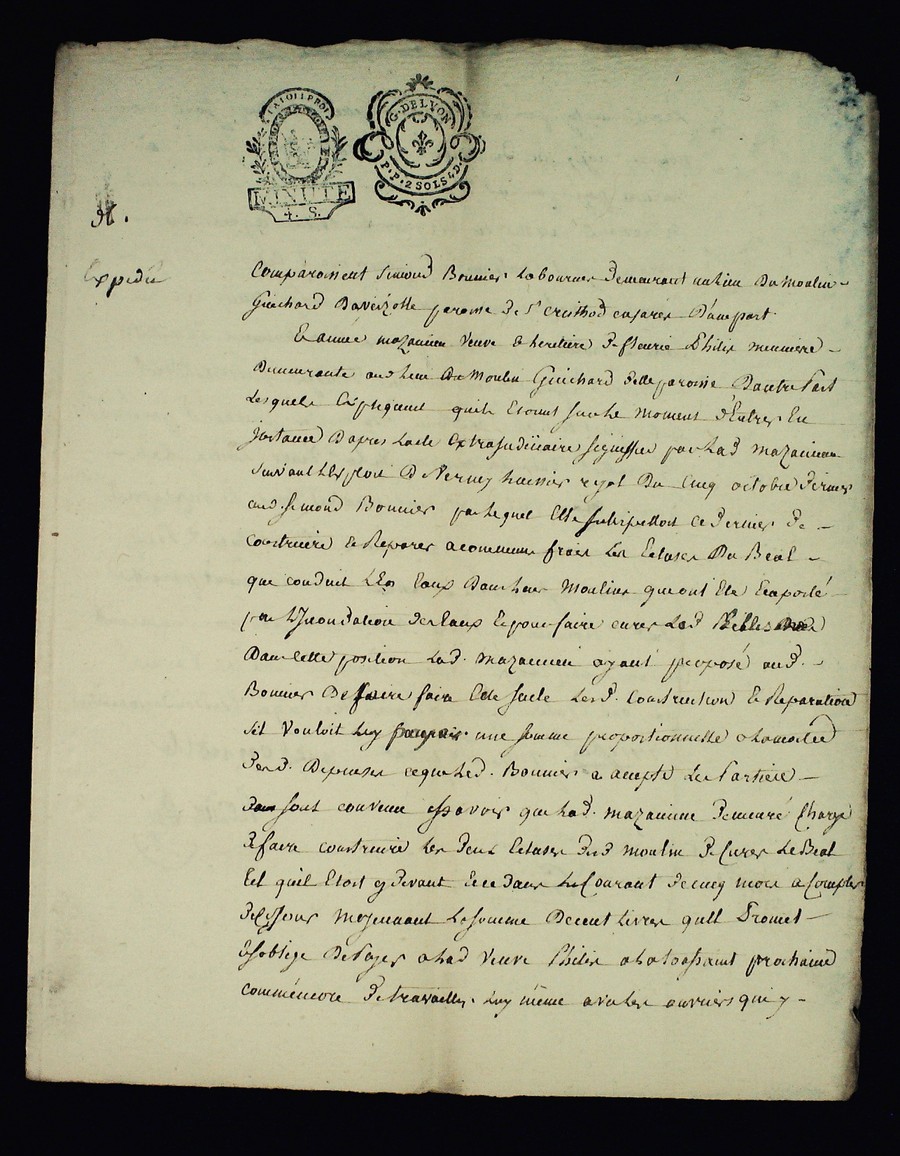 LA LOI LE ROI
G. DE LYON
P. P. 2 SOLS 4 D.
MINUTE
4. S.
Expédié
Comparoissent Simond Bonnier Laboureur Demeurant au lieu Du Moulin
Guichard Davèizotte paroisse de St Cristhod en Jarès D'une part
Et année mazancieu Veuve & heritiere De fleurie Philis meuniere
Demeurante aud. lieu du Moulin Guichard dette paroisse Dautre Part
Lesquels Expliquent quils Etoient sur le moment d'Entrer En
jnstance D'apres Lacte Extrajudiciaire signiffié par lad mazancieu
suivant L'Exploit De Verney huissier royal Du Cinq octobre Dernier
aud. Simond Bonnier par lequel Elle Interpelloit ce Dernier De
Construire & Reparer a commun frais les Ecluses Du Beal
que conduit Les Eaux Dans leurs Moulins que ont Eté Emporté
par L'Inondation des Eaux Et pour faire curer Led
Dans cette position Lad. Mazancieu ayant proposé aud.
Bonnier De faire faire Elle seule Lesd. Construction & Reparations
sil Vouloit Luy payer une somme proportionnelle a la moitié
desd. Depenses ce que led. Bonnier a accepté Les Parties
sont convenu assavoir que lad. mazancieu Demeure Chargé
de faire construire les deux Ecluses dud moulin De Curer Le Beal
tel quil Etoit cy devant & ce dans Le Courant De cinq mois a Compter
moyennant La somme De cent Livres quil Promet
& soblige De Payer a lad Veuve Philis a la toussaint prochaine
comme encore De travailler luy même avec les ouvriers qui y